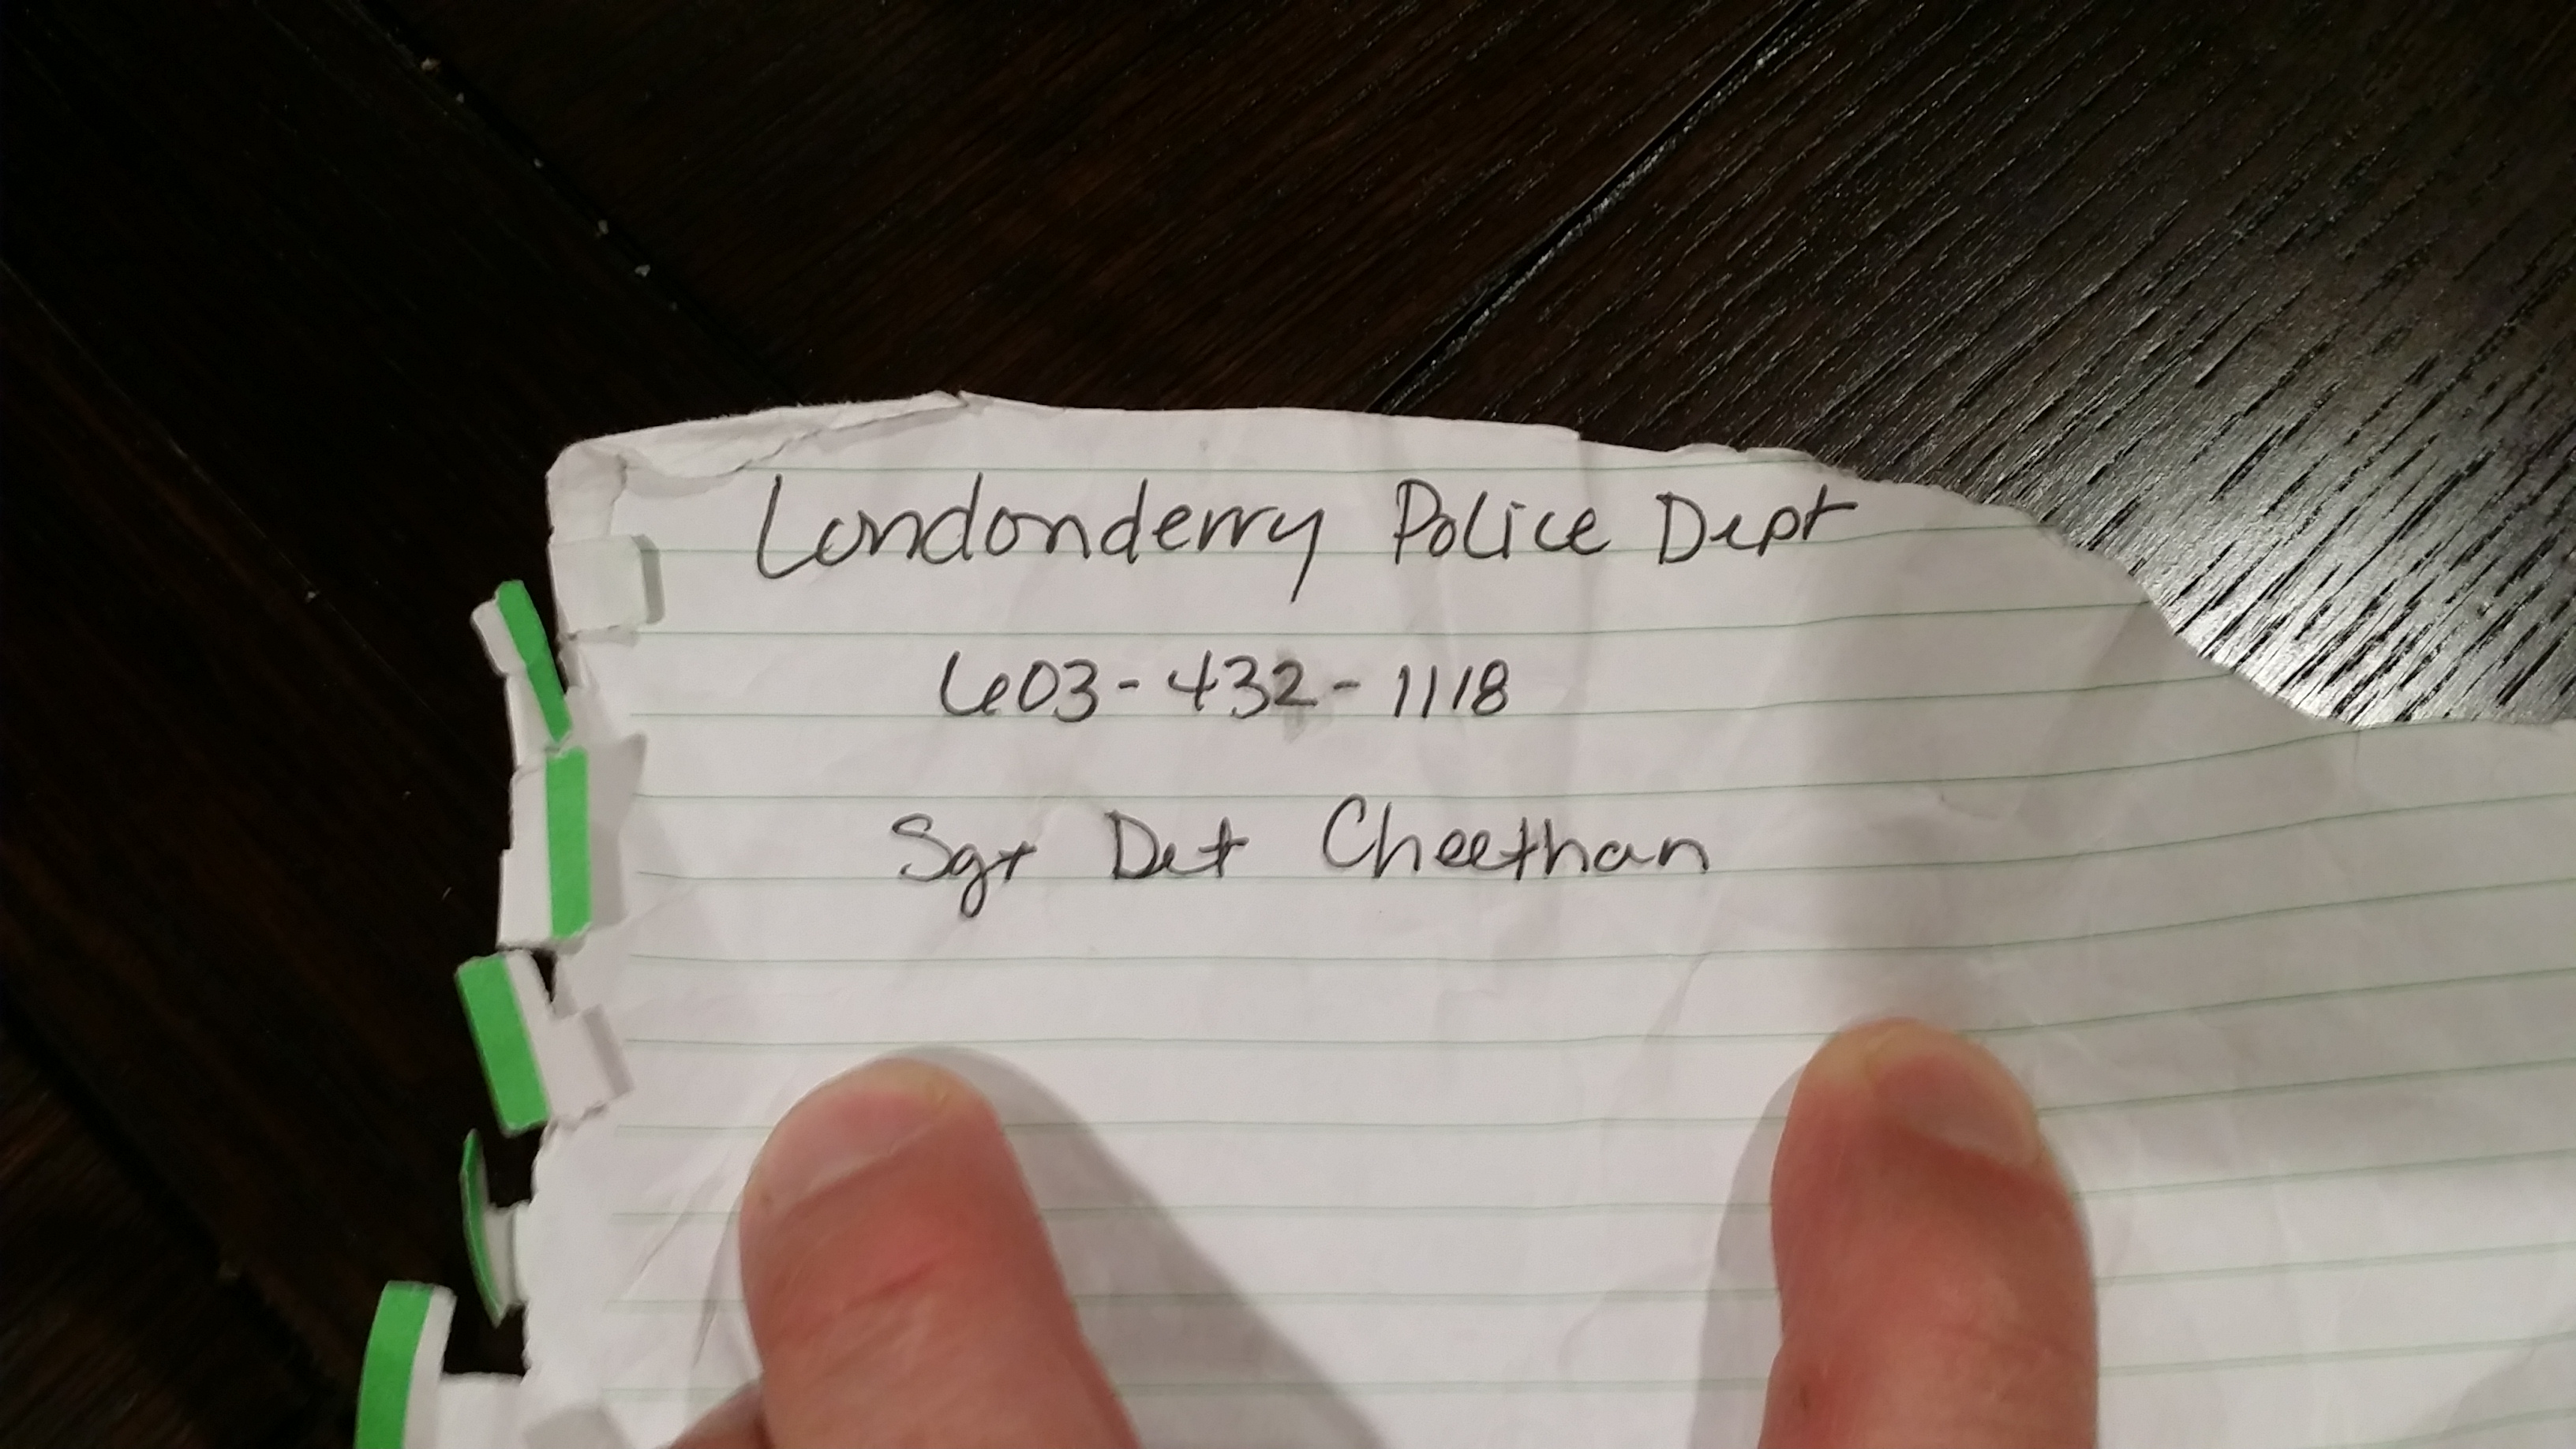 Londonderry Police Dept
603-432-1118
Sgt Det Cheethan